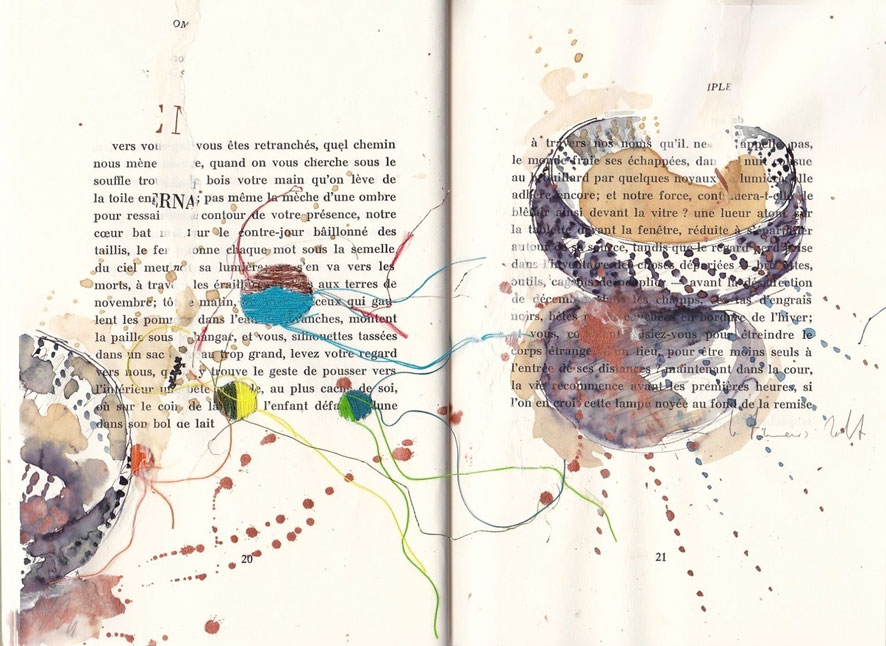 OM
EI
vers vou vous êtes retranchés, quel chemin
nous mène e, quand on vous cherche sous le
souffle trou bois votre main qu'on lève de
la toile en ERNA pas même la mèche d'une ombre
pour ressai contour de votre présence, notre
cœur bat sur le contre-jour bâillonné des
taillis, le fer onne chaque mot sous la semelle
du ciel meu sa lumière s'en va vers les
morts, à trave les érail aux terres de
novembre; tô matin, ceux qui gau
lent les pomm dans l'eau branches, montent
la paille sous hangar, et vous, silhouettes tassées
dans un sac au trop grand, levez votre regard
vers nous, q y trouve le geste de pousser vers
l'intérieur une bête le, au plus caché de soi,
où sur le coin de la l'enfant défa une
dans son bol de lait
20
IPLE
à travers nos noms qu'il ne appelle pas,
le monde fraie ses échappées, dan nuit sue
au brouillard par quelques noyaux lumi elle
adhère encore; et notre force, cont uera-t-elle
blêmir ainsi devant la vitre ? une lueur atone sur
la tablette devant la fenêtre, réduite à s'éparpiller
autour de sa source, tandis que le regard
dans l'inventaire des choses dépariées
outils, cageots de avant la désaffection
de décembre dans les champs, les tas d'engrais
noirs, bêtes en bordure de l'hiver;
vous, siez-vous pour étreindre le
corps étrange lieu, pour être moins seuls à
l'entrée de ses dis maintenant dans la cour,
la vie recommence avant les premières heures, si
l'on en croit cette lampe noyée au fond de la remise
21